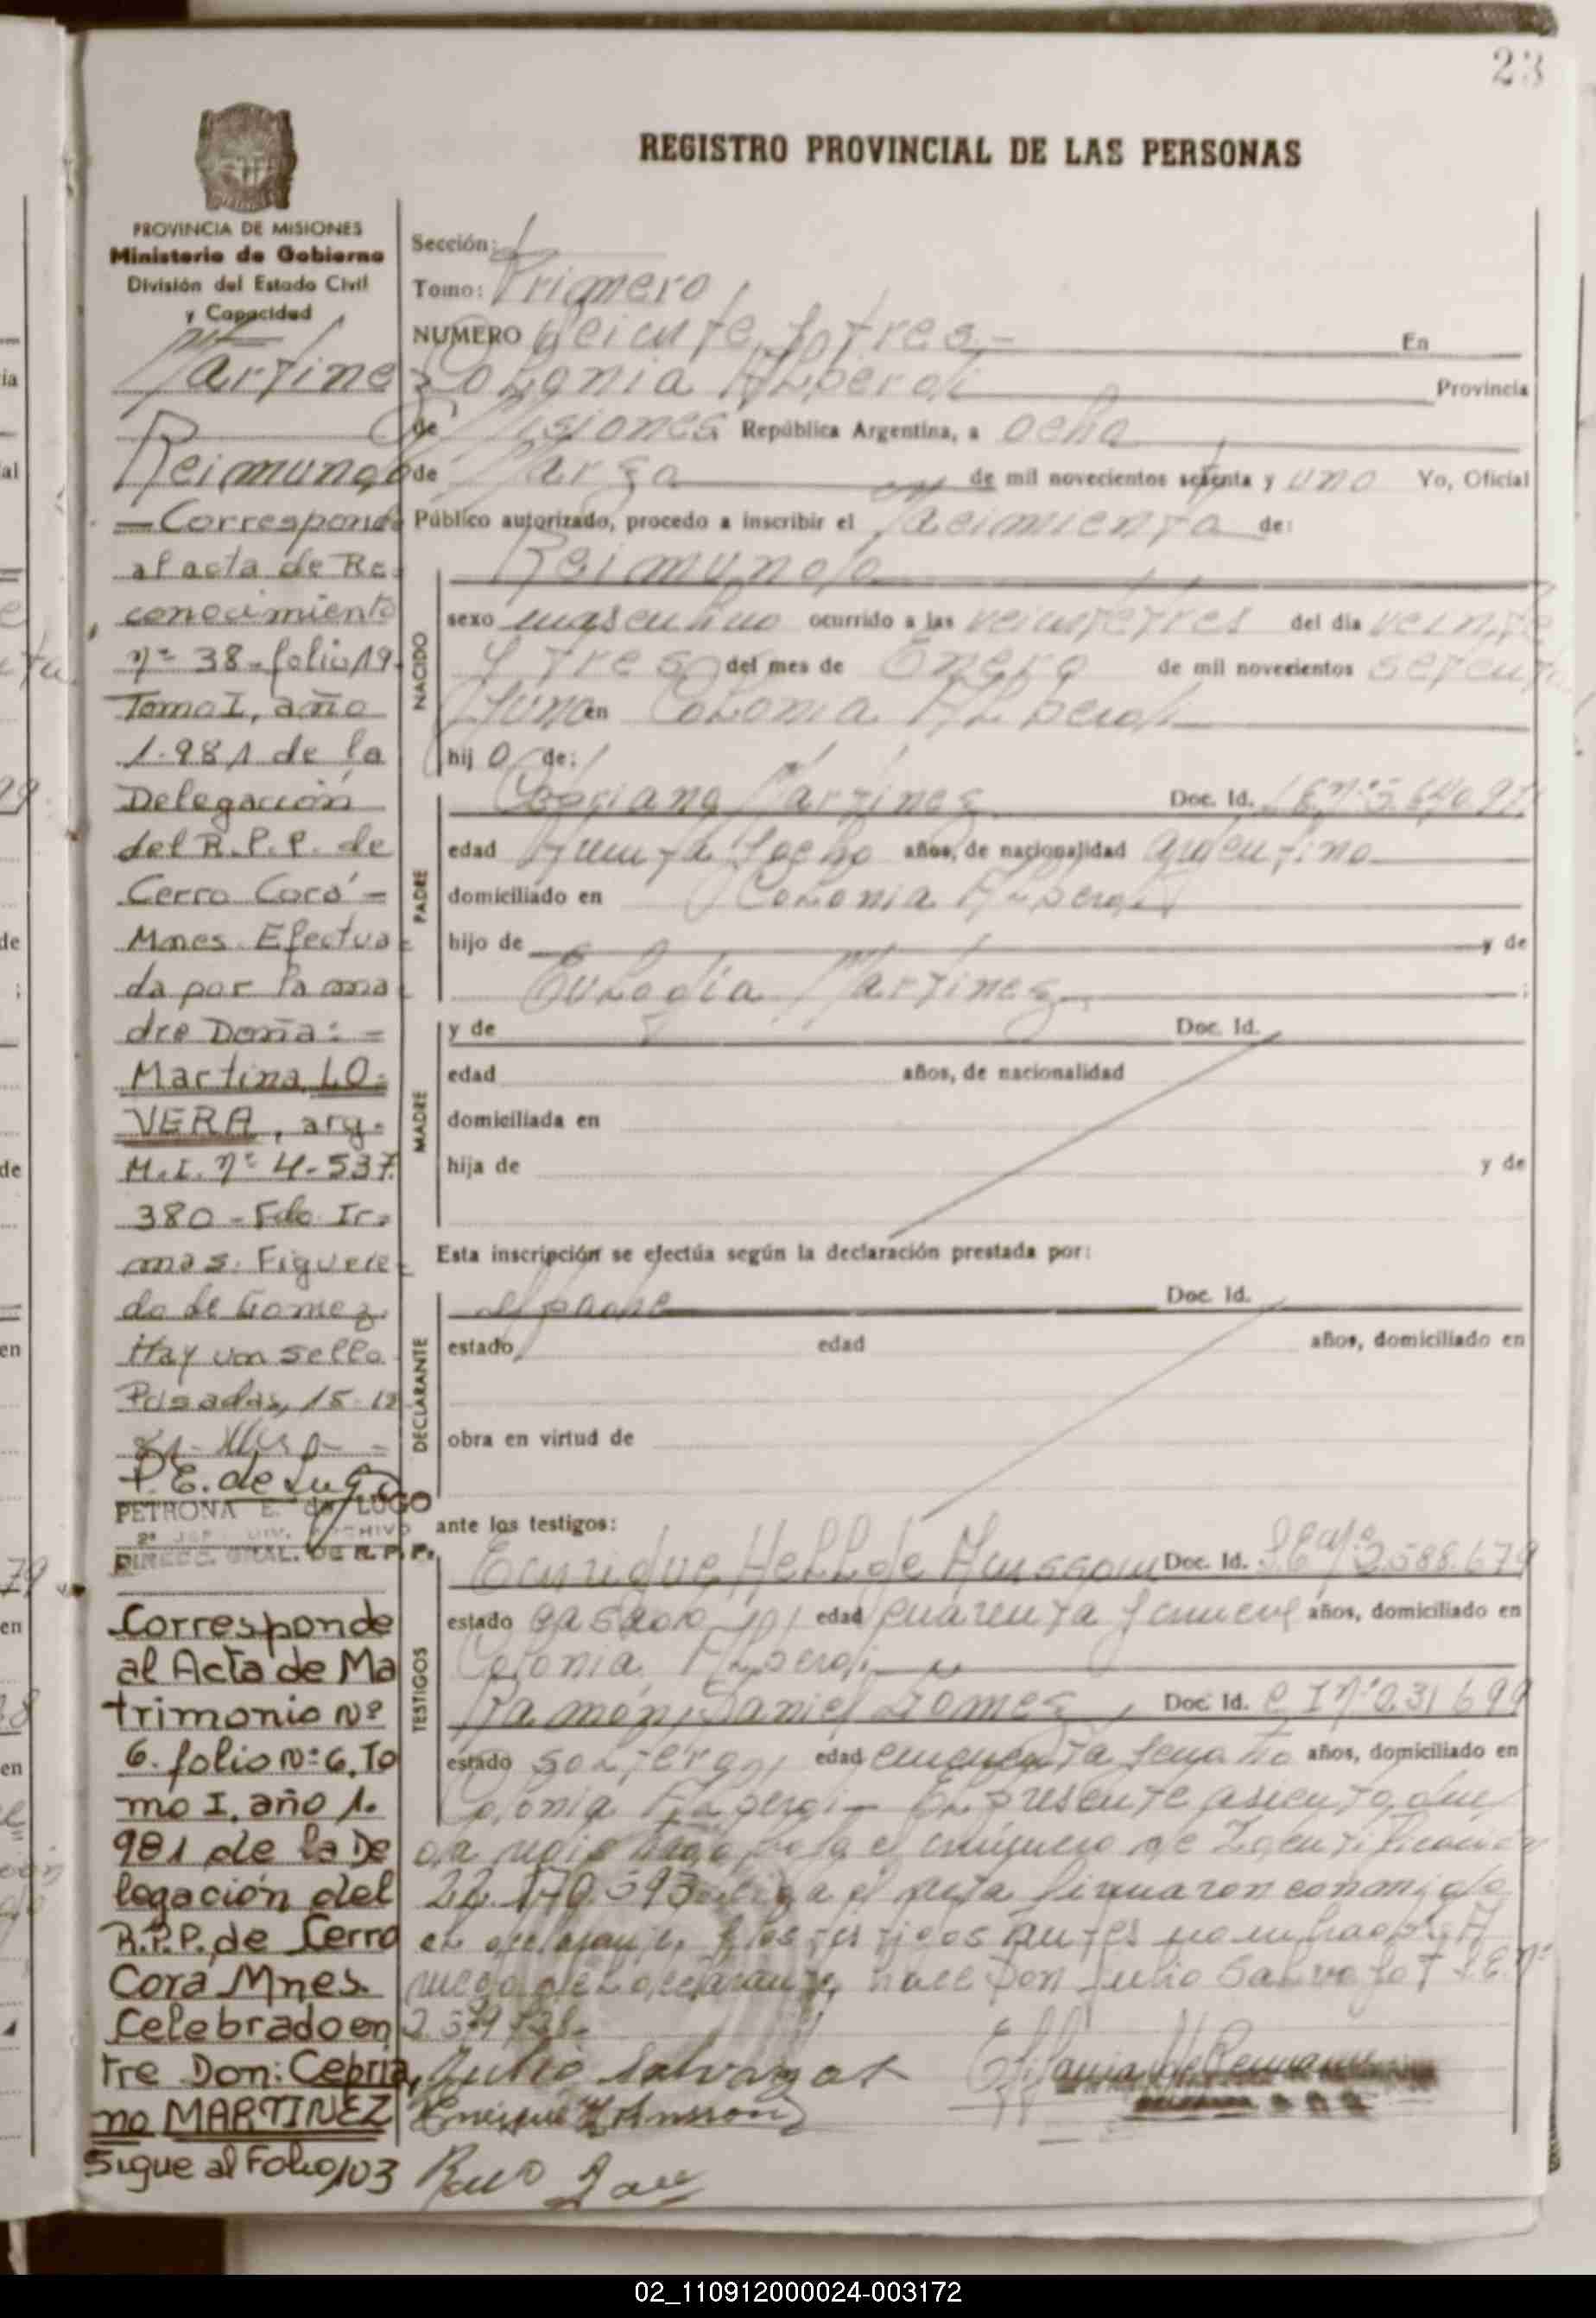 23
REGISTRO PROVINCIAL DE LAS PERSONAS
PROVINCIA DE MISIONES
Ministerio de Gobierno
División del Estado Civil
y Capacidad
Martinez
Reimundo
— Corresponde
al acta de Re-
conocimiento
nº 38 - folio 19.
Tomo I, año
1.981 de la
Delegación
del R.P.P. de
Cerro Corá -
Mnes. Efectua-
da por la ma-
dre Doña: =
Martina LO-
VERA, arg.
M.I. nº 4.537.
380 - Fdo. Ir-
ma S. Figuere-
do de Gomez.
Hay un sello
Posadas, 15-12
81-
P.E. de Lugo
PETRONA E. de LUGO
2º JEF. DIV. ARCHIVO
DIRECC. GRAL. DE R.P.P.
Corresponde
al Acta de Ma
trimonio Nº
6. folio Nº 6. To
mo I. año 1.
981 de la De
legación del
R.P.P. de Cerro
Corá Mnes.
Celebrado en
tre Don: Cebria
no MARTINEZ
Sigue al Folio 103
Sección: 1
Tomo: Primero
NUMERO Veinte y tres.- En
Colonia Alberdi Provincia
de Misiones República Argentina, a ocho
de Marzo de mil novecientos setenta y uno Yo, Oficial
Público autorizado, procedo a inscribir el Nacimiento de:
Reimundo
NACIDO
sexo masculino ocurrido a las veintetres del día veinte
y tres del mes de Enero de mil novecientos setenta
y uno en Colonia Alberdi
hijo de:
PADRE
Cebriano Martinez Doc. Id. L E nº
edad treinta y ocho años, de nacionalidad argentino
domiciliado en Colonia Alberdi
hijo de y de
Eulogia Martines ;
MADRE
y de Doc. Id.
edad años, de nacionalidad
domiciliada en
hija de y de
Esta inscripción se efectúa según la declaración prestada por:
DECLARANTE
el padre Doc. Id.
estado edad años, domiciliado en
obra en virtud de
ante los testigos:
TESTIGOS
Enrique Doc. Id. 3.588.679
estado casado edad cuarenta y nueve años, domiciliado en
Colonia Alberdi
Ramón Daniel Gomes, Doc. Id. C I nº 231699
estado soltero, edad cincuenta y cuatro años, domiciliado en
Colonia Alberdi - El presente asiento que
da registrado bajo el número de Identificación
22.170.593 el acta firmaron conmigo
el declarante y los testigos antes nombrados. A
ruego del declarante, hace Don Julio Salvo
Julio
Enrique
02_110912000024-003172